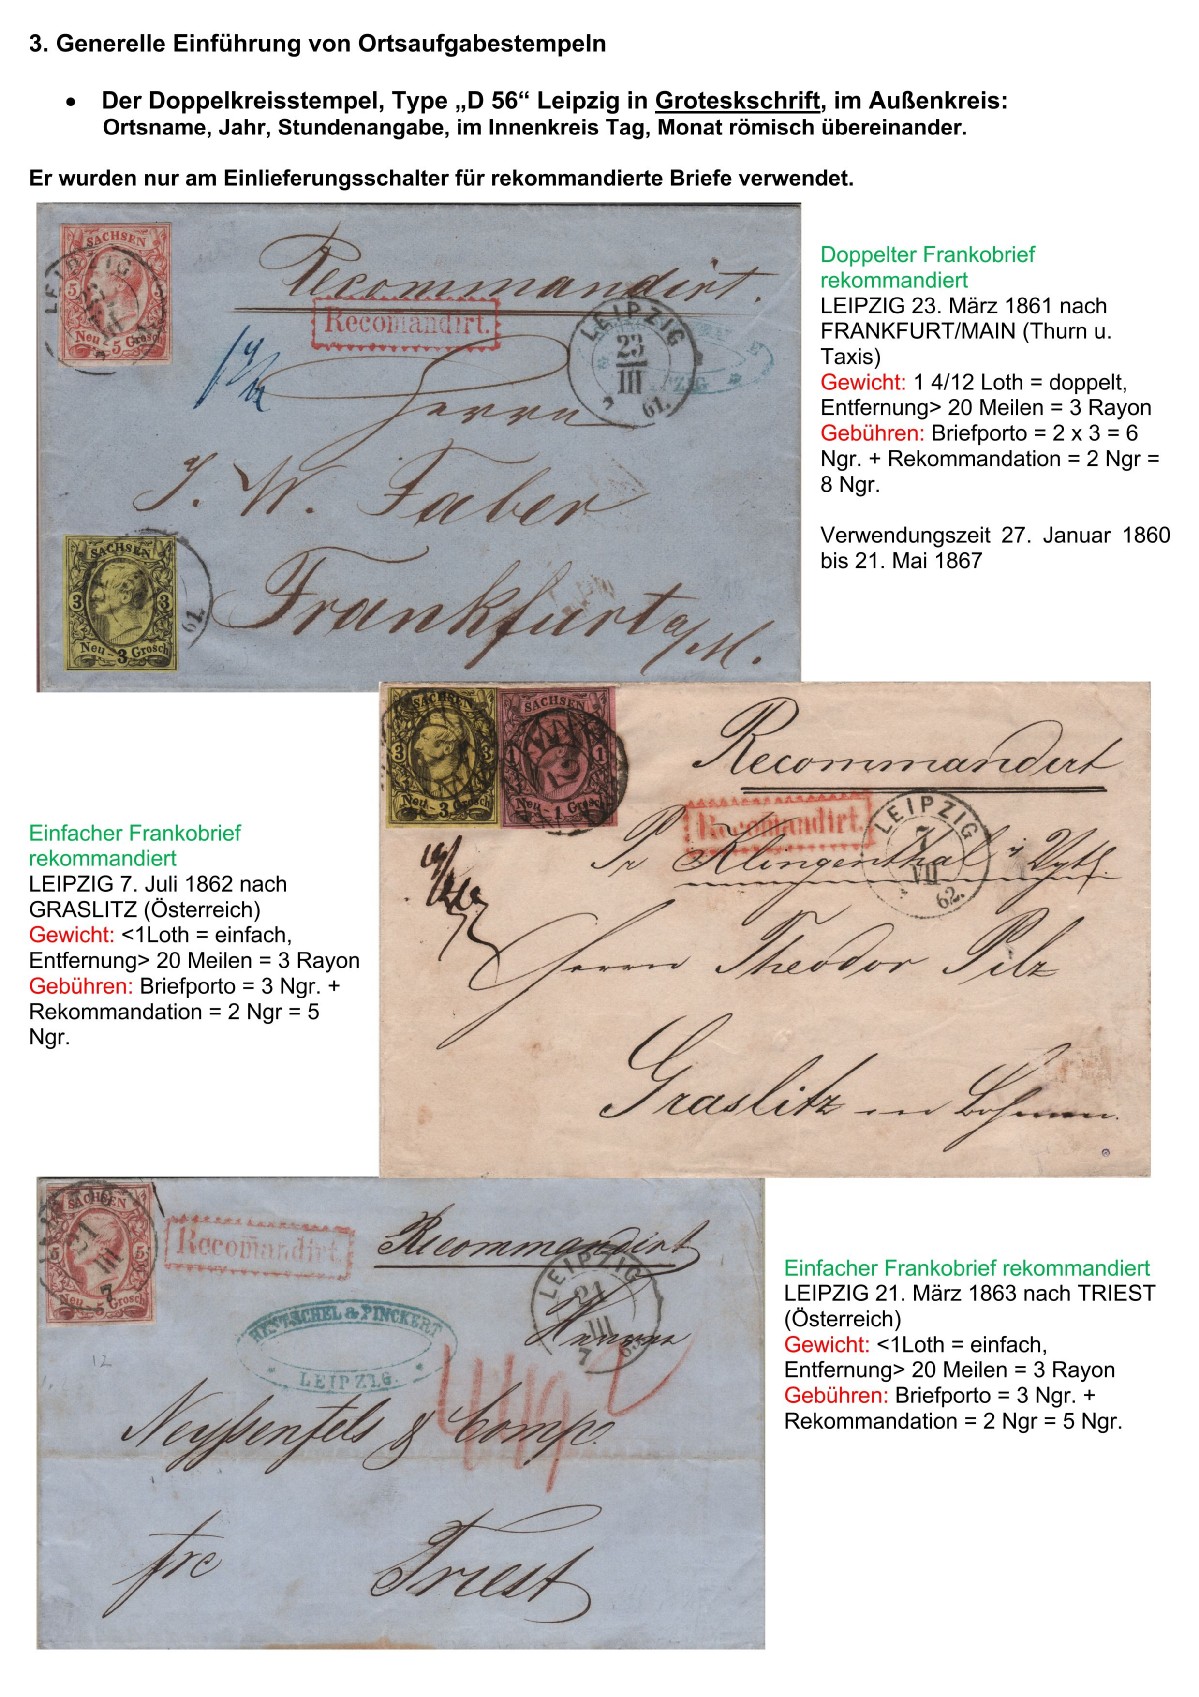 3. Generelle Einführung von Ortsaufgabestempeln
• Der Doppelkreisstempel, Type „D 56“ Leipzig in Groteskschrift, im Außenkreis:
Ortsname, Jahr, Stundenangabe, im Innenkreis Tag, Monat römisch übereinander.
Er wurden nur am Einlieferungsschalter für rekommandierte Briefe verwendet.
SACHSEN
5 5
Neu 5 Grosch
LEIPZIG
Recommandirt.
Recomandirt.
LEIPZIG
23
III
7 61.
Herrn
J. W. Faber
Frankfurt a/M.
SACHSEN
3 3
Neu 3 Grosch
61.
Doppelter Frankobrief
rekommandiert
LEIPZIG 23. März 1861 nach
FRANKFURT/MAIN (Thurn u.
Taxis)
Gewicht: 1 4/12 Loth = doppelt,
Entfernung> 20 Meilen = 3 Rayon
Gebühren: Briefporto = 2 x 3 = 6
Ngr. + Rekommandation = 2 Ngr =
8 Ngr.
Verwendungszeit 27. Januar 1860
bis 21. Mai 1867
SACHSEN
3 3
Neu 3 Grosch
SACHSEN
1 1
Neu 1 Grosch
Recommandirt
Recomandirt.
LEIPZIG
7
VII
62.
Pr Klingenthal
Herrn Theodor Pilz
Graslitz in Böhmen.
Einfacher Frankobrief
rekommandiert
LEIPZIG 7. Juli 1862 nach
GRASLITZ (Österreich)
Gewicht: <1Loth = einfach,
Entfernung> 20 Meilen = 3 Rayon
Gebühren: Briefporto = 3 Ngr. +
Rekommandation = 2 Ngr = 5
Ngr.
SACHSEN
5 5
Neu 5 Grosch
21
III
7
Recomandirt.
Recommandirt
LEIPZIG
21
III
7 63.
HENTSCHEL & PINCKERT
LEIPZIG.
Herren
12
Neyssenfels & Comp.
frc Triest
Einfacher Frankobrief rekommandiert
LEIPZIG 21. März 1863 nach TRIEST
(Österreich)
Gewicht: <1Loth = einfach,
Entfernung> 20 Meilen = 3 Rayon
Gebühren: Briefporto = 3 Ngr. +
Rekommandation = 2 Ngr = 5 Ngr.